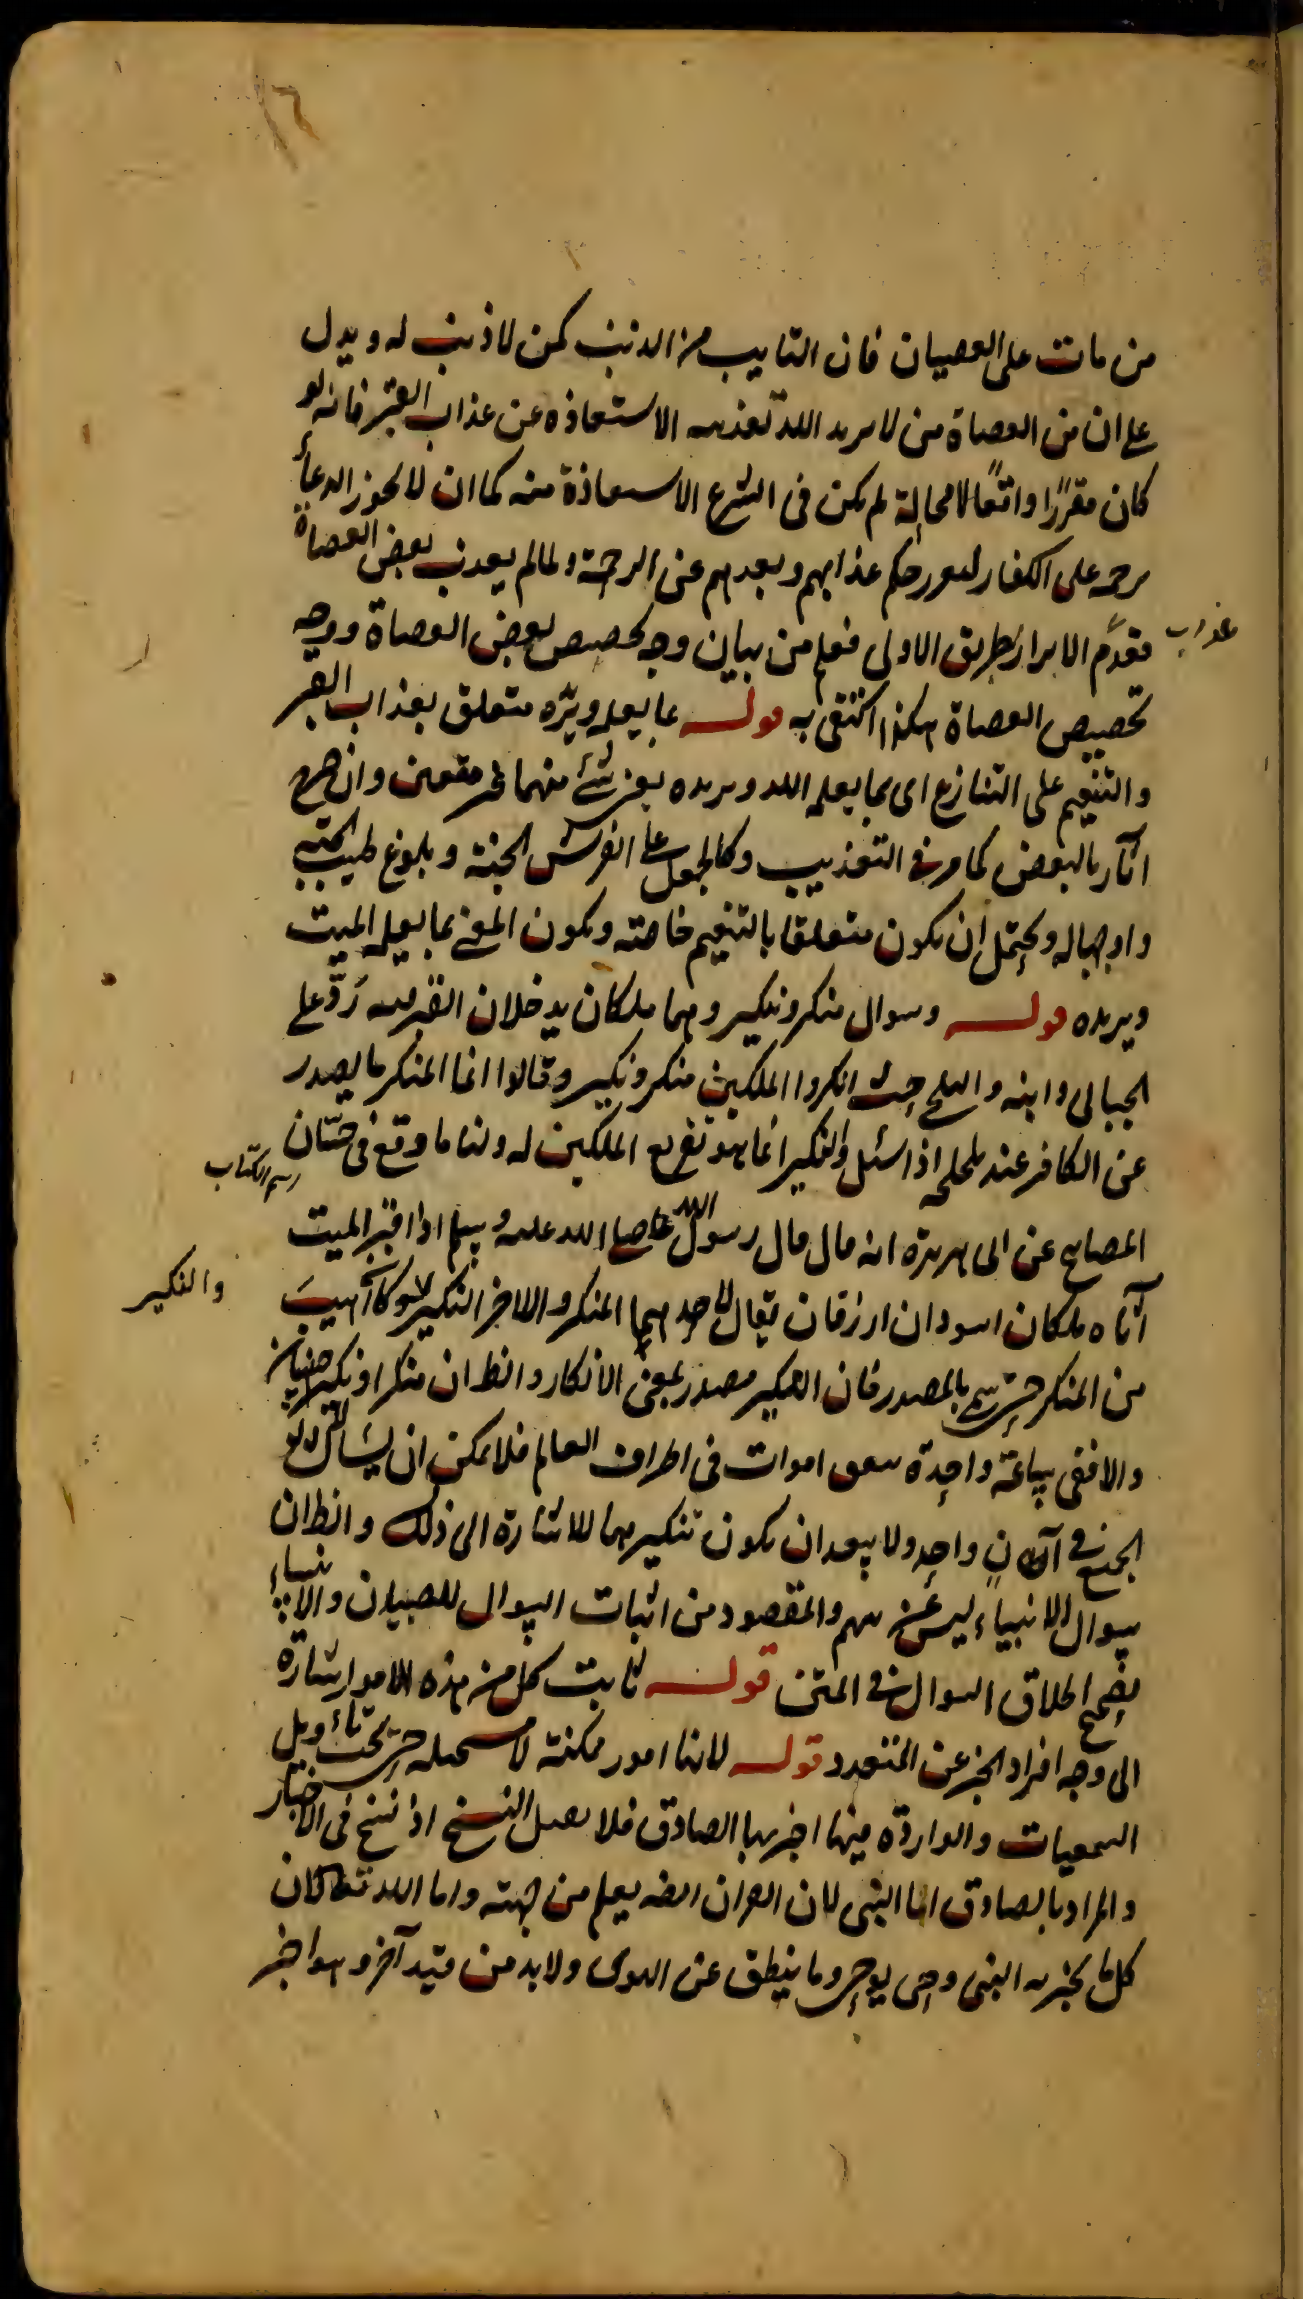 من مات على العصيان فان التايب من الذنب كمن لا ذنب له ويدل
على ان من العصاة من لا يريد الله تعذيبه الاستعاذة عن عذاب القبر فانه لو
كان مقررًا واقعًا لا محالة لم يكن فى الشرع الاستعاذة منه كما ان لا يجوز الدعاء
على الكفار حكم عذابهم وبعدهم عن الرحمة ولما لم يعذب بعض العصاة
فعدم الابرار بطريق الاولى فعلم من بيان وجه تخصيص بعض العصاة ووجه
عذاب
تخصيص العصاة هكذا اكتفى به قوله بما يعلمه ويريده متعلق بعذاب القبر
والتنعيم على التنازع اى بما يعلمه الله ويريده يعنى شئ منهما غير متعين وان صرح
آثار بالبعض كما مر فى التعذيب وكالجعل على الفرش الجنة وبلوغ طيب الجنة
واوجباله ويحتمل ان يكون متعلقا بالتنعيم خاصة ويكون المعنى بما يعلمه الميت
ويريده قوله وسوال منكر ونكير وهما ملكان يدخلان القبر رَدّ على
الجبالى وابنه والبلخى حيث انكروا الملكين منكر ونكير وقالوا انما المنكر ما يصدر
عن الكافر عند تلجلجه اذا سئل والنكير انما هو تقريع الملكين له ولنا ما وقع فى حسان
اسم الكتاب
المصابيح عن ابى هريرة انه قال قال رسول الله صلى الله عليه وسلم اذا اقبر الميت
اتاه ملكان اسودان ازرقان يقال لاحدهما المنكر والاخر النكير كانه اهيب
والنكير
من المنكر حتى سمى بالمصدر فان النكير مصدر بمعنى الانكار والظ ان منكرا ونكيرا صنفان
والا ففى ساعة واحدة اموات فى اطراف العالم فلا يمكن ان يسال
الجميع فى آن واحد ولا يبعد ان يكون تنكيرهما للاشارة الى ذلك والظ ان
سوال الانبياء ليس عن والمقصود من اثبات السوال للصبيان والانبياء
اطلاق السوال فى المتن قوله ثابت كل من هذه الامور اشارة
الى وجه افراد الخبر عن المتعدد قوله لانها امور ممكنة لا مستحيلة حتى تحت تأويل
السمعيات والواردة فيها اخبر بها الصادق فلا النسخ اذ لا نسخ فى الاخبار
والمراد بالصادق اما النبى لان القران ايضا يعلم من جهته واما الله تعالى لان
كل ما يخبر به النبى وحى يوحى وما ينطق عن الهوى ولا بد من قيد آخر وهو اخبر